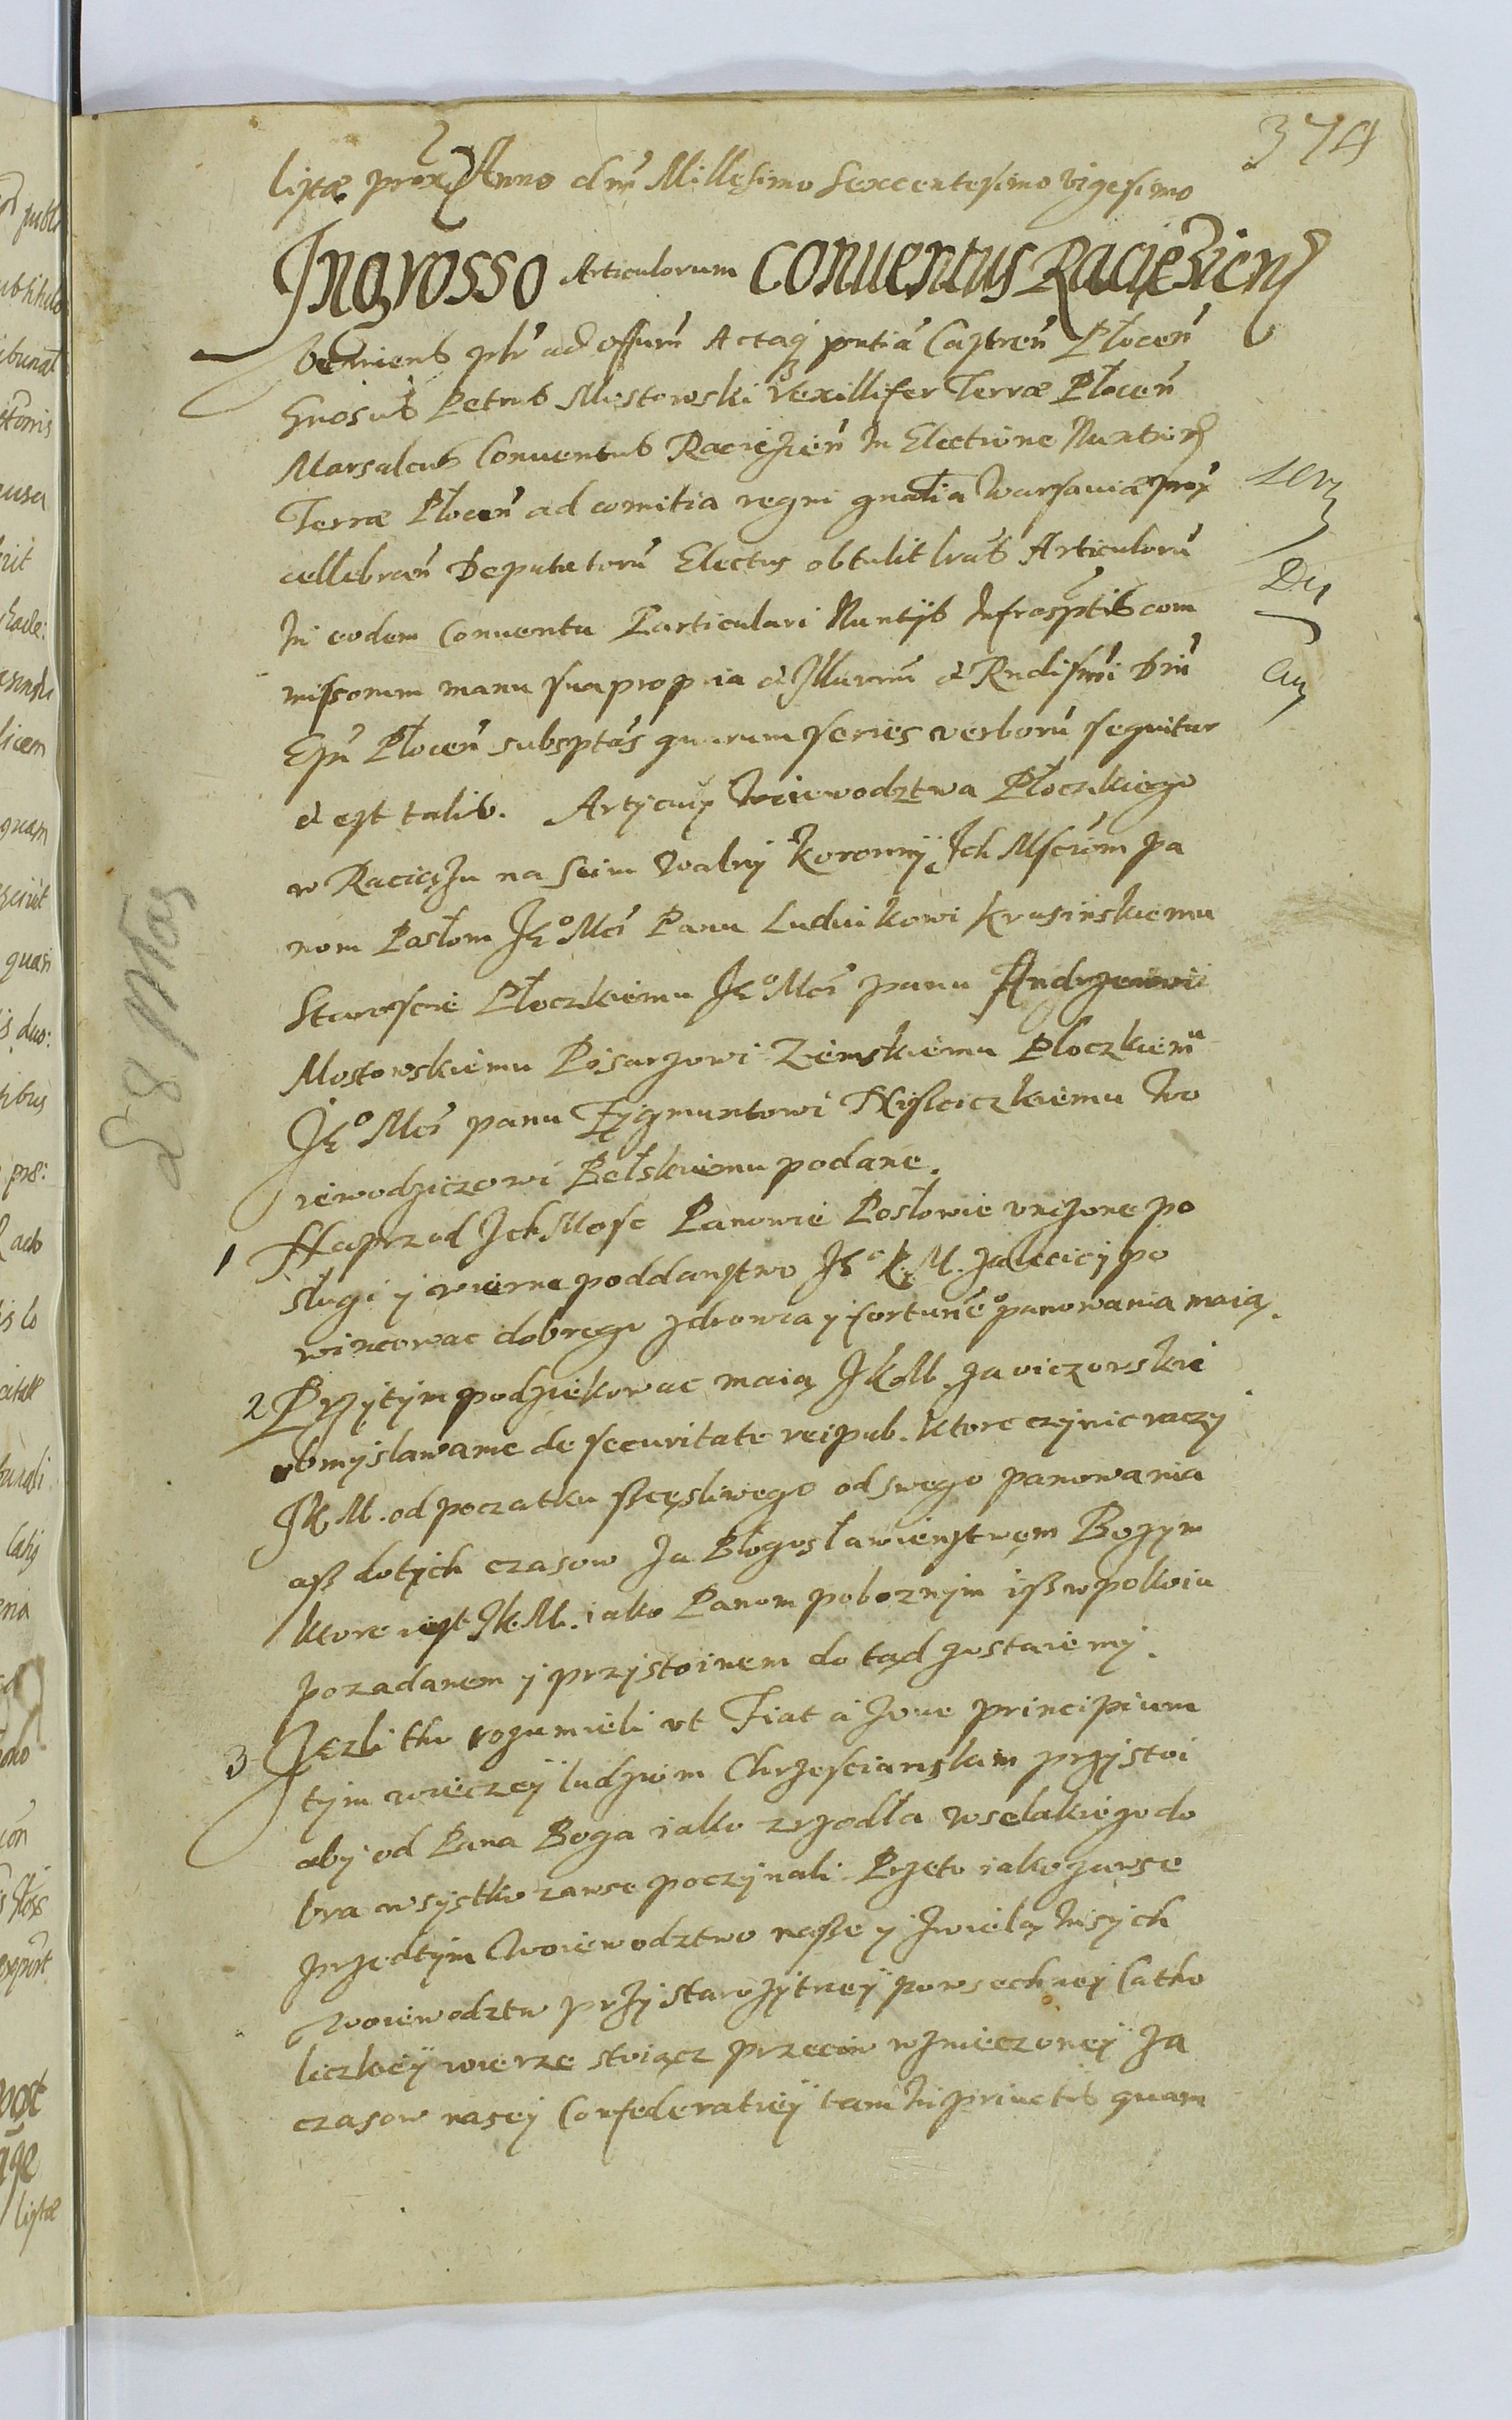 374
listæ prox Anno dni Millesimo Sexcentesimo vigesimo
Ingrosso Articulorum Conuentus Raciezien
Veniens plr ad offum Actaq pntia Castren Płocen
Gnosus Petrus Mostowski Vexillifer Terræ Płocen
Marsalcus Conuentus Raciezien In Electione Nuntior
Terræ Płocen ad comitia regni gnalia Warsauiæ prox
cellebran Deputatoru Electus obtulit lras Articuloru
In eodem Conuentu Particulari Nuntijs Infrasptis com
missorum manu sua propria et Illurmi et Rndissmi Dni
Epi Płocen subsptas quarum series verboru sequitur
et est talis. Artycuły Woiewodztwa Płoczkiego
w Raciążu na Seim Walny Koronny Ich Msciom pa
nom Posłom Je° Mci Panu Ludwikowi Krasinskiemu
Staroscie Płoczkiemu Je° Mci panu Andrzeiowi
Mostowskiemu Pisarzowi Ziemskiemu Płoczkiemu
Je° Mci panu Zygmuntowi Nisczickiemu Wo
iewodziczowi Bełskiemu podane.
1 Naprzod Ich Mosc Panowie Posłowie unizone po
sługi y wierne poddanstwo Je° K. M. zalecic y po
winszowac dobrego zdrowia y fortunne° panowania maią.
2 Przytym podziekowac maią JKM. za oiczowskie
obmyslawanie de securitate reipub. ktore czynic raczy
JKM. od początku sczęsliwego od swego panowania
asz dotych czasow za Błogosławienstwem Bozym
ktore iest JKM. iako Panom poboznym isz w pokoiu
pozadanem y przystoinem dotąd zostaiemy.
3 Jezli tho rozumieli ut Fiat à Joue principium
tym wieczey ludziom Chrzescianskim przystoi
aby od Pana Boga iako zrzodła wselakiego do
bra wsystko zawse poczynali Przeto iako zawse
przedtym Woiewodztwo nasze y zwielą Insych
Woiewodztw przy starozytney powsechney Catho
liczkiey wierze stoiącz przeciw wznieczoney za
czasow nasey Confederatiey tam In priuatis quam